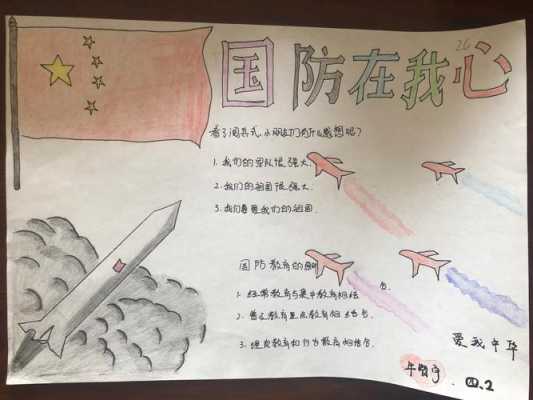 国防在我心
26
看了阅兵式,小朋友们有什么感想呢?
1.我们的军队很强大.
2.我们的祖国很强大.
3.我们要爱我们的祖国.
国防教育的原则
1.经常教育与集中教育相结合.
2.普及教育与重点教育相结合.
3.理论教育和行为教育相结合.
爱我中华
四.2